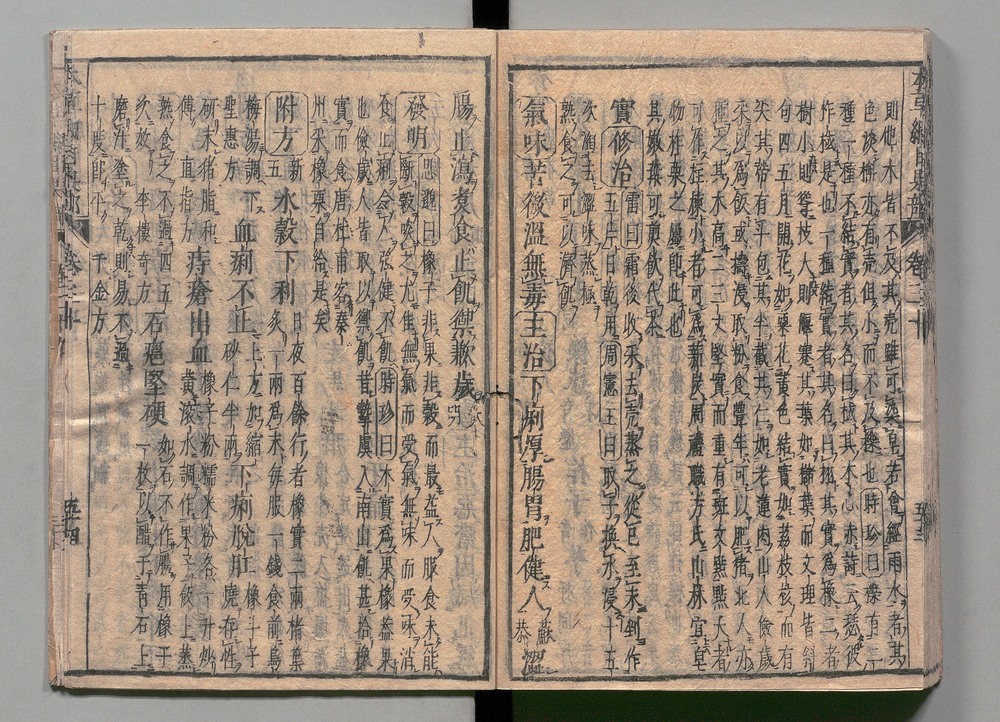 則他木皆不及其殼雖可染皂若曾經雨水者其
色淡槲亦有殼但小而不及櫟也時珍曰櫟有二
種一種不結實者其名曰棫其木心赤詩云瑟彼
柞棫是也一種結實者其名曰栩其實為橡二者
樹小則聳枝大則偃蹇其葉如櫧葉而文理皆斜
勾四五月開花如栗花黃色結實如荔枝核而有
尖其蒂有斗包其半截其仁如老蓮肉山人儉歲
采以為飯或擣浸取粉食豐年可以肥豬北人亦
種之其木高二三丈堅實而重有斑文點點大者
可作柱棟小者可為薪炭周禮職方氏山林宜皂
物柞栗之屬即此也
其嫩葉可煎飲代茶
實修治雷曰霜後收采去殼蒸之從巳至未剉作
五片日乾用周憲王曰取子換水浸十五
次淘去澀味蒸極
熟食之可以濟飢
氣味苦微溫無毒主治下痢厚腸胃肥健人蘇恭澀
腸止瀉煮食止飢禦歉歲
發明思邈曰橡子非果非穀而最益人服食未能
斷穀啖之尤佳無氣而受氣無味而受味消
食止痢令人強健不飢時珍曰木實為果橡蓋果
也儉歲人皆取以禦飢昔摯虞入南山飢甚拾橡
實而食唐杜甫客秦
州采橡栗自給是矣
附方新五水穀下利日夜百餘行者橡實二兩楮葉
炙一兩為末每服一錢食前烏
梅湯調下
聖惠方血痢不止上方加縮砂仁半兩下痢脫肛橡斗子燒存性
研末豬脂和
傅直指方痔瘡出血橡子粉糯米粉各一升炒
黃滾水調作果子飯上蒸
熟食之不過四五
次效李樓奇方石癰堅硬如石不作膿用橡子
一枚以醋于青石上
磨汁塗之乾則易不過
十度即平千金方
卷三十
五十三
卷三十
五十四